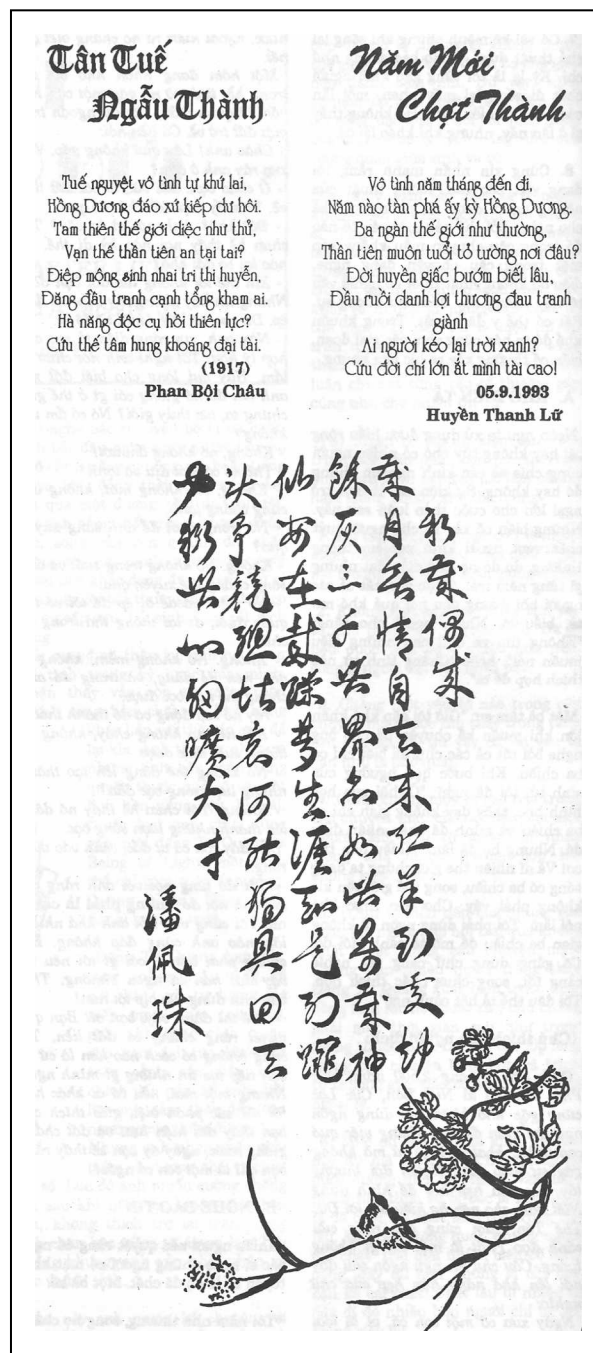 Tân Tuế
Ngẫu Thành
Tuế nguyệt vô tình tự khứ lai,
Hồng Dương đáo xứ kiếp dư hôi.
Tam thiên thế giới diệc như thử,
Vạn thế thần tiên an tại tai?
Điệp mộng sinh nhai tri thị huyễn,
Đăng đầu tranh cạnh tổng kham ai.
Hà năng độc cụ hồi thiên lực?
Cứu thế tâm hung khoáng đại tài.
(1917)
Phan Bội Châu
Năm Mới
Chợt Thành
Vô tình năm tháng đến đi,
Năm nào tàn phá ấy kỳ Hồng Dương.
Ba ngàn thế giới như thường,
Thần tiên muôn tuổi tỏ tường nơi đâu?
Đời huyền giấc bướm biết lâu,
Đầu ruồi danh lợi thương đau tranh
giành
Ai người kéo lại trời xanh?
Cứu đời chí lớn ắt mình tài cao!
05.9.1993
Huyền Thanh Lữ
新歲偶成
歲月無情自去来紅羊到處劫
餘灰三千世界亦如此萬歲神
仙安在哉蝶夢生涯知是幻蠅
头爭競總堪哀何能獨具回天
力救世心胸曠大才
潘佩珠